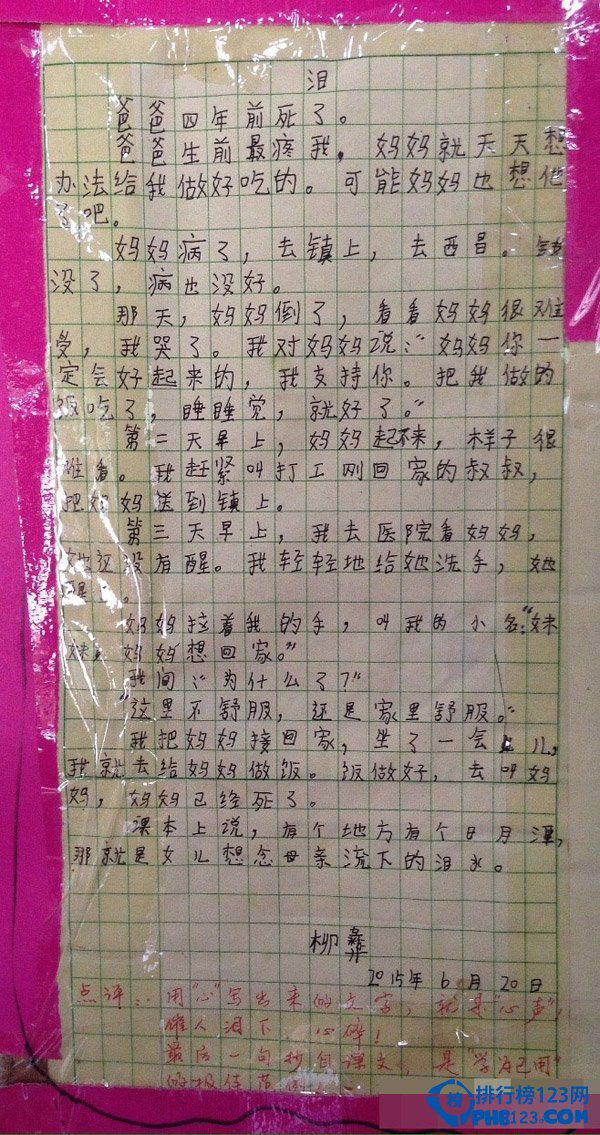 泪
爸爸四年前死了。
爸爸生前最疼我,妈妈就天天想
办法给我做好吃的。可能妈妈也想他
了吧。
妈妈病了,去镇上,去西昌。钱
没了,病也没好。
那天,妈妈倒了,看看妈妈很难
受,我哭了。我对妈妈说:“妈妈你一
定会好起来的,我支持你。把我做的
饭吃了,睡睡觉,就好了。”
第二天早上,妈妈起不来,样子很
难看。我赶紧叫打工刚回家的叔叔,
把妈妈送到镇上。
第三天早上,我去医院看妈妈,
她还没有醒。我轻轻地给她洗手,她
醒了。
妈妈拉着我的手,叫我的小名:“妹
妹,妈妈想回家。”
我问:“为什么了?”
“这里不舒服,还是家里舒服。”
我把妈妈接回家,坐了一会儿,
我就去给妈妈做饭。饭做好,去叫妈
妈,妈妈已经死了。
课本上说,有个地方有个日月潭,
那就是女儿想念母亲流下的泪水。
柳彝
2015年6月20日
点评:用“心”写出来的文字,就是“心声”,
催人泪下,心碎!
最后一句抄自课文,是“学为己用”
的极佳范例
排行榜123网
PHB123.com